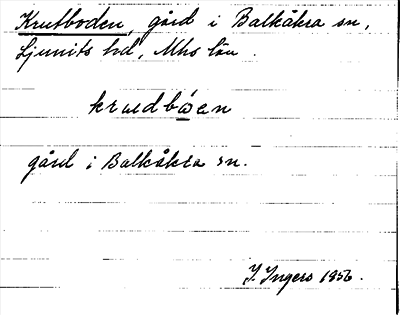 Krutboden, gård i Balkåkra sn,
Ljunits hd, Mhs län.
krudbøen
gård i Balkåkra sn.
I. Ingers 1956.